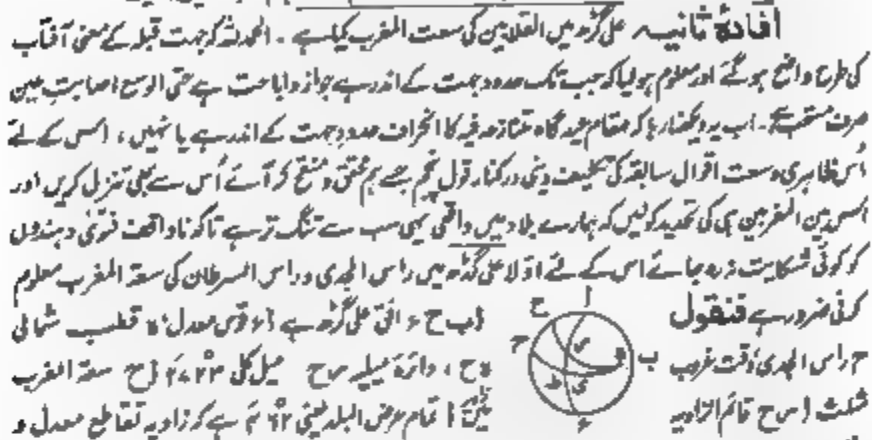 افادۂ ثانیہ علی گڑھ میں القلابین کی سعت المغرب کیا ہے ۔ الحمد للہ کہ جہت قبلہ کے معنی آفتاب
کی طرح واضح ہوگئے اور معلوم ہولیا کہ جب تک حدود جہت کے اندر ہے جواز و اباحت ہے حتی الوسع اصابت عین
صرف مستحب ہے ۔ اب یہ دیکھنا رہا کہ مقام عید گاہ متنازعہ فیہ کا انحراف حدود جہت کے اندر ہے یا نہیں ، اس کے لئے
اُس ظاہری وسعت اقوال سابقہ کی تکلیف دینی درکنار قول پنجم جسے ہم محقق و منقح کر آئے اُس سے بھی تنزل کریں اور
اسی بین المغربین ہی کی تحدید کو لیں کہ ہمارے بلاد میں واقعی یہی سب سے تنگ تر ہے تاکہ ناواقف فتوٰی دہندوں
کو کوئی شکایت نہ رہ جائے اس کے لئے اوّلا علی گڑھ میں راس الجدی و راس السرطان کی سعۃ المغرب معلوم
کرنی ضرور ہے فنقول ا ب ح ء افق علی گڑھ ہے ا ء قوس معدل ہ قطب شمالی
ح راس الجدی وقت غروب ہ ح ، دائرہ میلیہ ر ح میل کلی ا ح سعۃ المغرب
مثلث ا ر ح قائم الزاویہ میں ا تمام عرض البلد یعنی ہے کہ زاویہ تقاطع معدل و